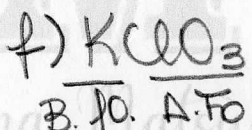 f) KClO₃
B. fO. A.FO